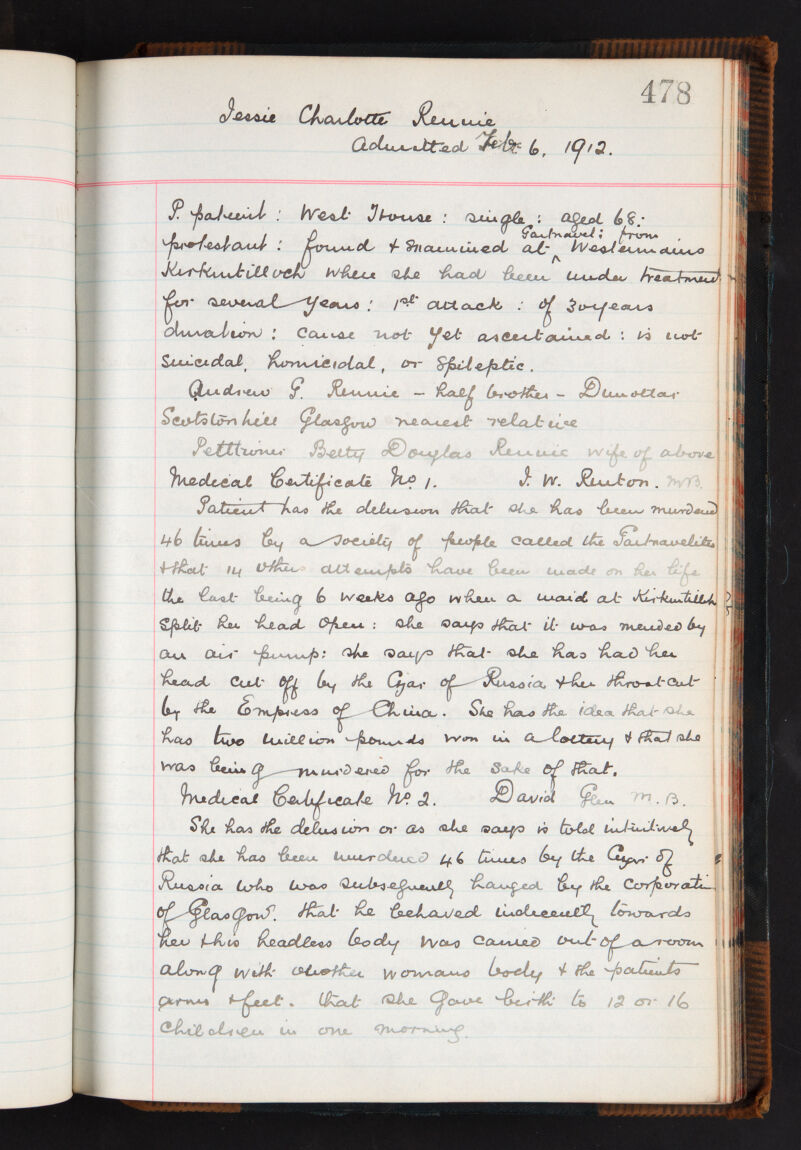 478
Jessie Charlotte Rennie
Admitted Feb 6, 1912.
P. patient : West House : single : aged 68 :
Gartnavel : from
protestant : found & examined at Westermains
Kirkintilloch where she had been under treatment
for several years : 1st attack : of 30 years
duration : cause not yet ascertained : is not
suicidal, homicidal, or Epileptic.
Andrew G. Rennie - half brother - Dunottar
Scotstonhill Glasgow nearest relative
Petitioner Betty Douglas Rennie wife of above
Medical Certificate No 1. J. W. Renton. M.B.
Patient has the delusion that she has been murdered
46 times by a society of people called the Gartnavelites
& that 14 other attempts have been made on her life
the last being 6 weeks ago when a maid at Kirkintilloch
split her head open : she says that it was mended by
an air pump : she says that she has had her
head cut off by the Czar of Russia & her throat cut
by the Empress of China. She has the idea that she
has two million pounds won in a lottery & that she
was being murdered for the sake of that.
Medical Certificate No 2. David Glen M.B.
She has the delusion or as she says is told intuitively
that she has been murdered 46 times by the Czar of
Russia who was subsequently hanged by the corporation
of Glasgow. that he behaved indecently towards
her & his headless body was carried out of a room
along with another womans body & the patients
arms & feet. that she gave birth to 12 or 16
children in one morning.